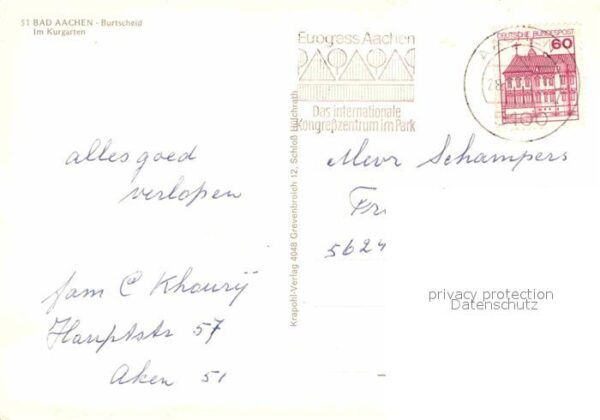 51 BAD AACHEN - Burtscheid
Im Kurgarten
Eurogress Aachen
Das internationale
Kongreßzentrum im Park
DEUTSCHE BUNDESPOST
60
5100
alles goed
verlopen
fam C Khouryj
Hauptstr 57
Aken 51
Krapohl-Verlag 4048 Grevenbroich 12, Schloß Hülchrath
Mevr Schampers
Fr
5624
privacy protection
Datenschutz